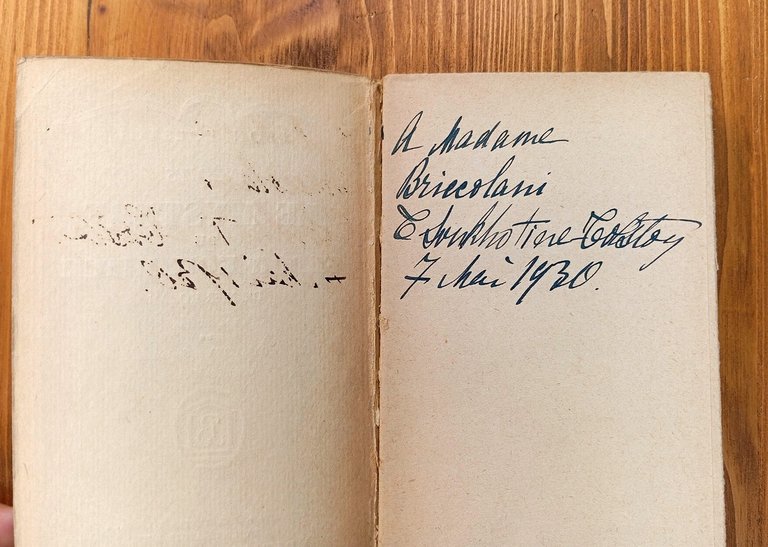 A Madame
Briccolani
T Soukhotine-Tolstoy
7 Mai 1930.